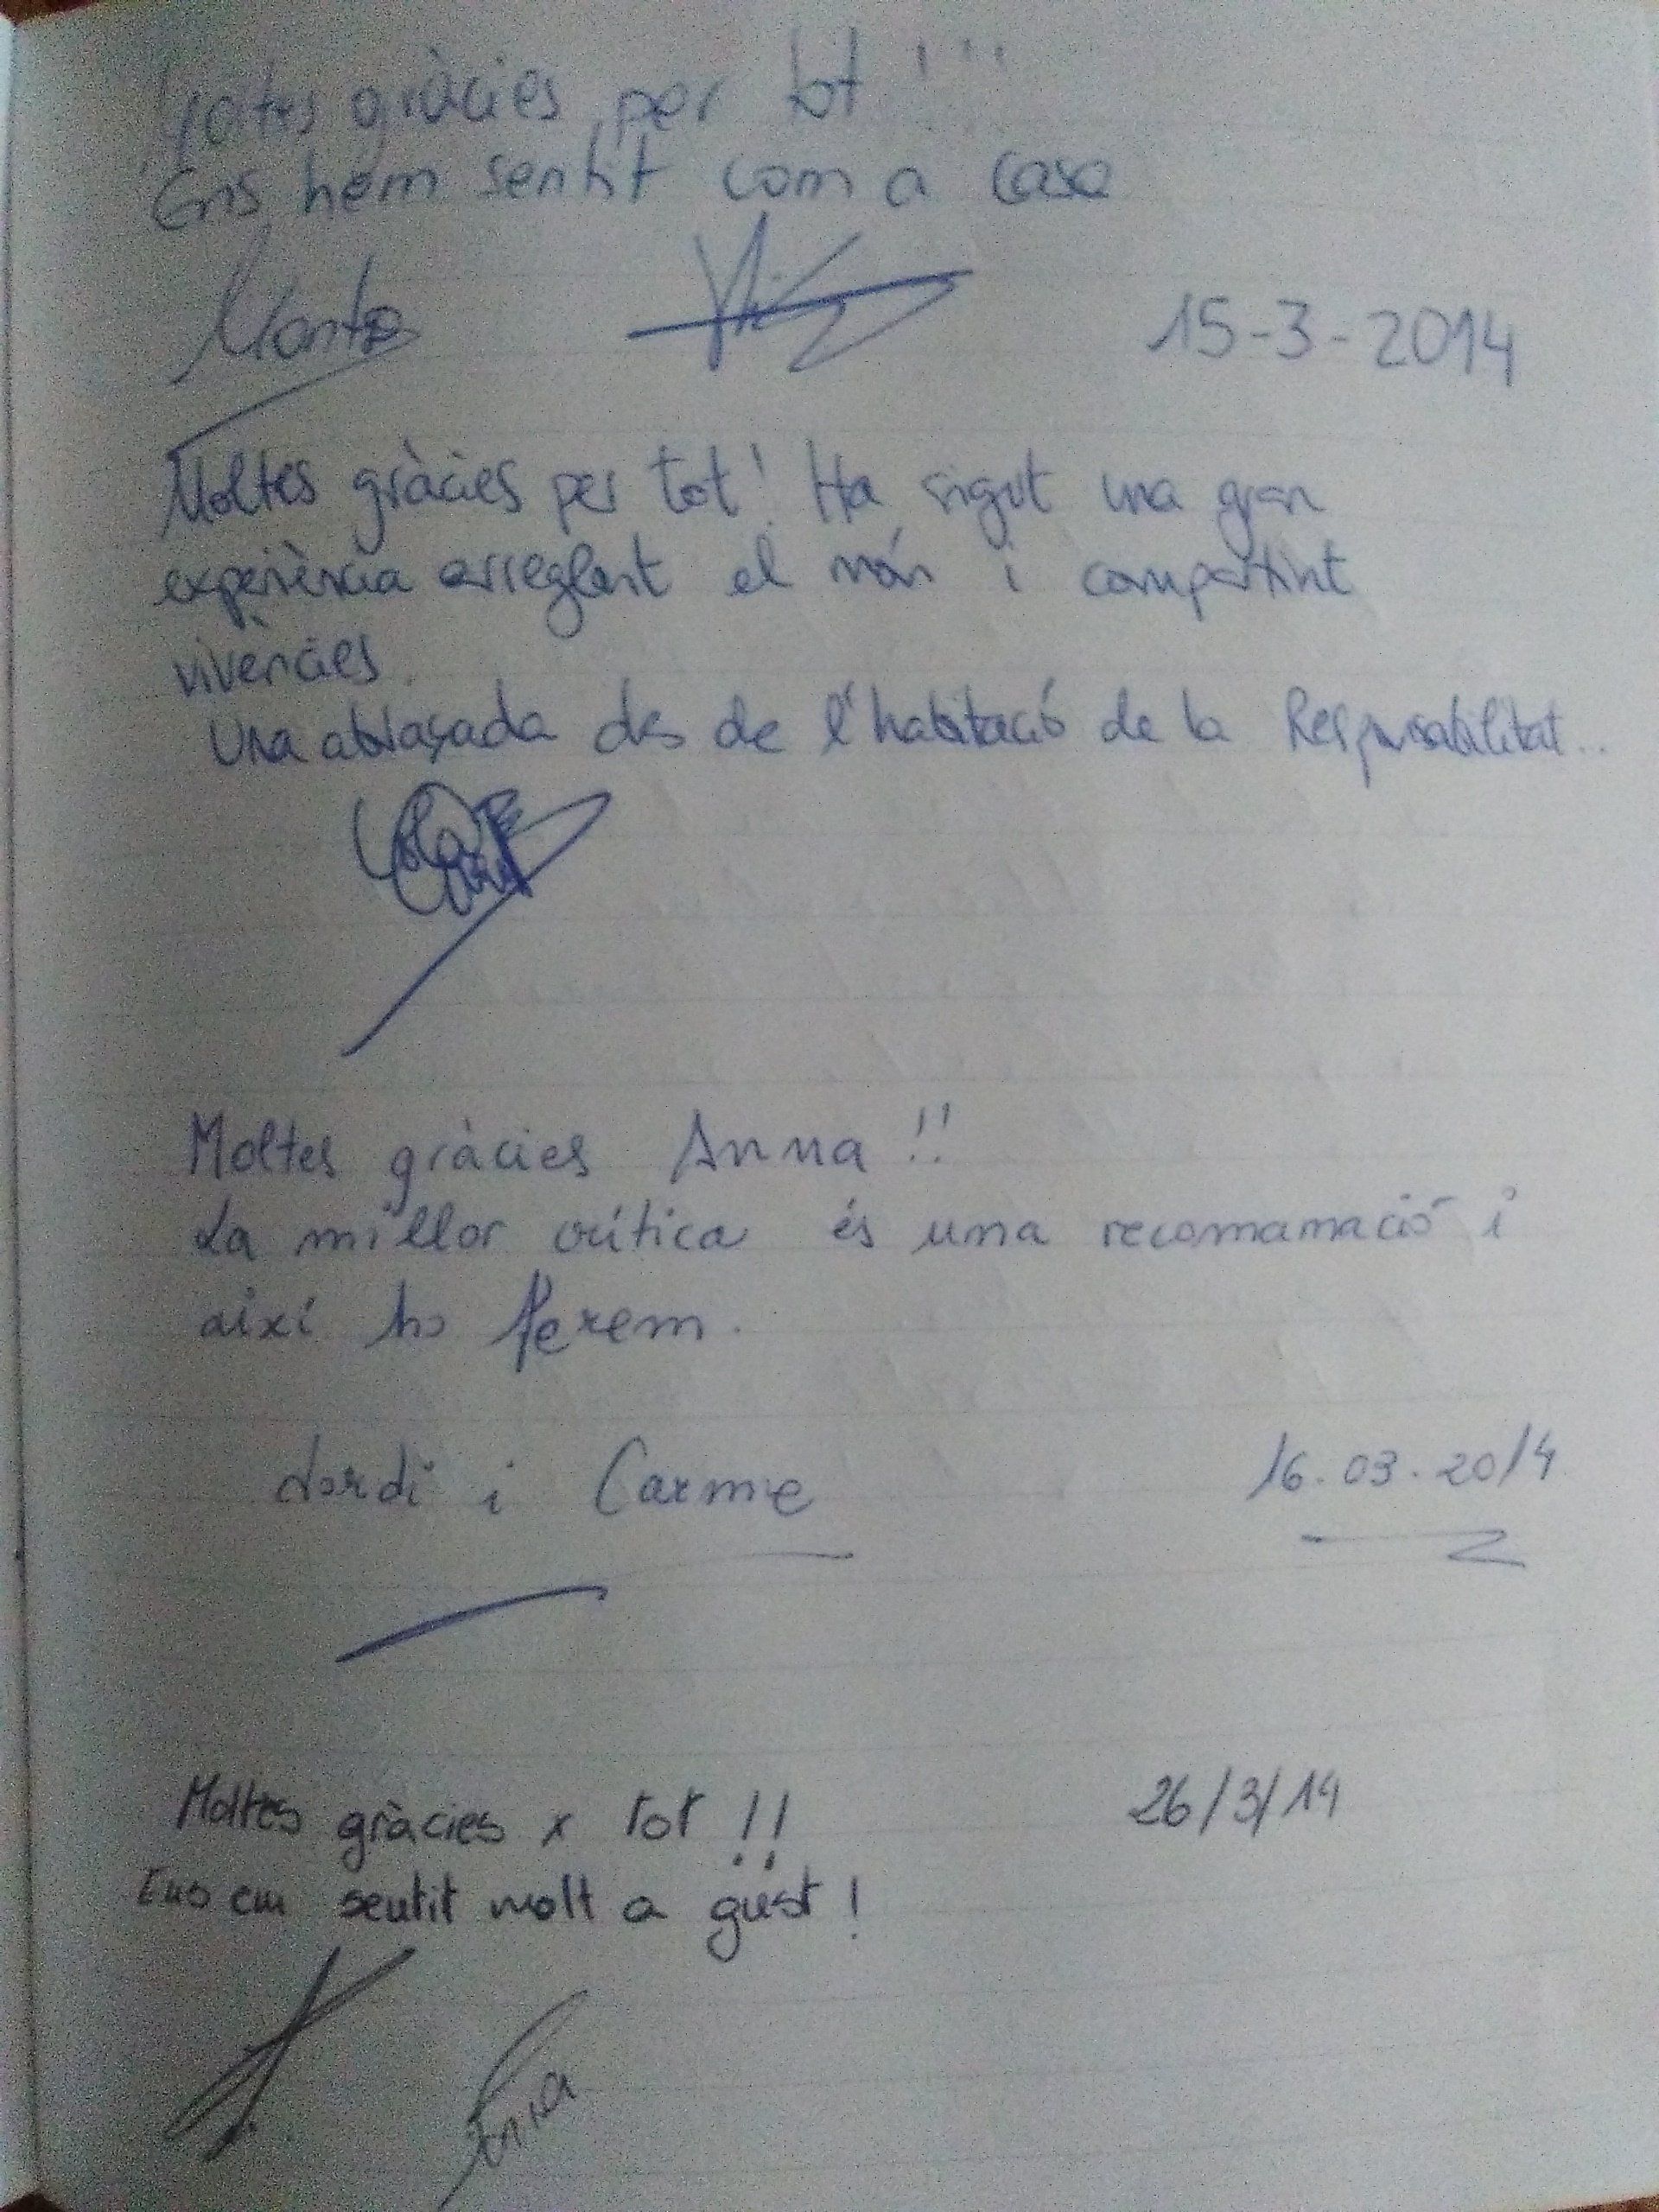 gràcies per tot !!!
Ens hem sentit com a casa
15-3-2014
Moltes gràcies per tot! Ha sigut una gran
experiència arreglant el món i compartint
vivències.
Una abraçada des de l'habitació de la Responsabilitat..
Moltes gràcies Anna !!
La millor crítica és una recomamació i
així ho ferem.
Jordi i Carme
16.03.2014
Moltes gràcies x tot !!
26/3/14
Ens em sentit molt a gust!